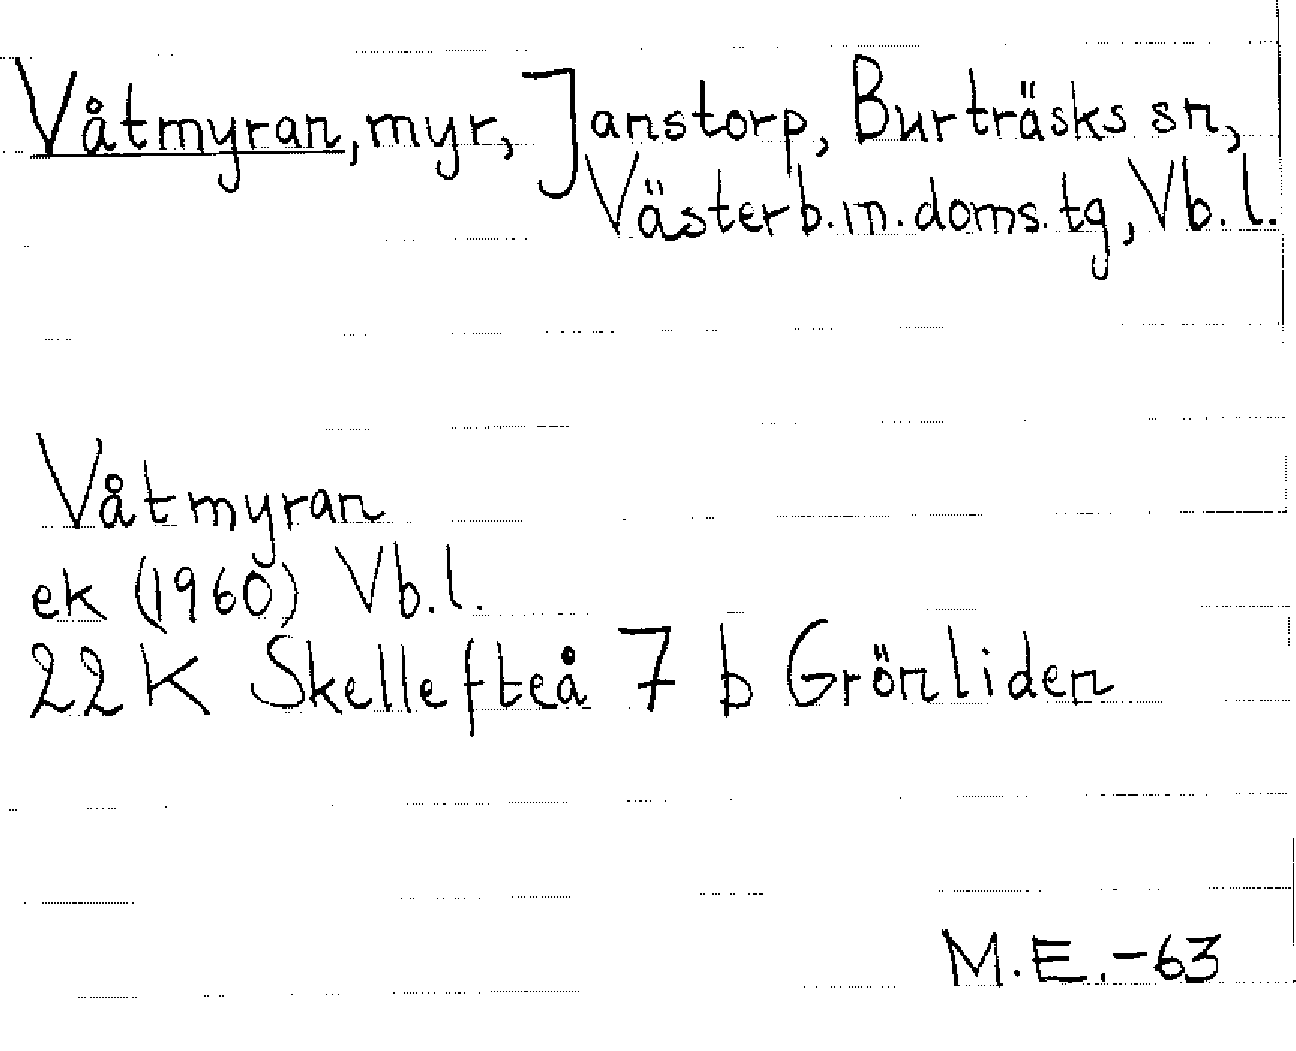 Våtmyran, myr, Janstorp, Burträsks sn,
Västerb.m.doms.tg, Vb.l.
Våtmyran
ek (1960) Vb.l.
22 K Skellefteå 7 b Grönliden
M.E.-63